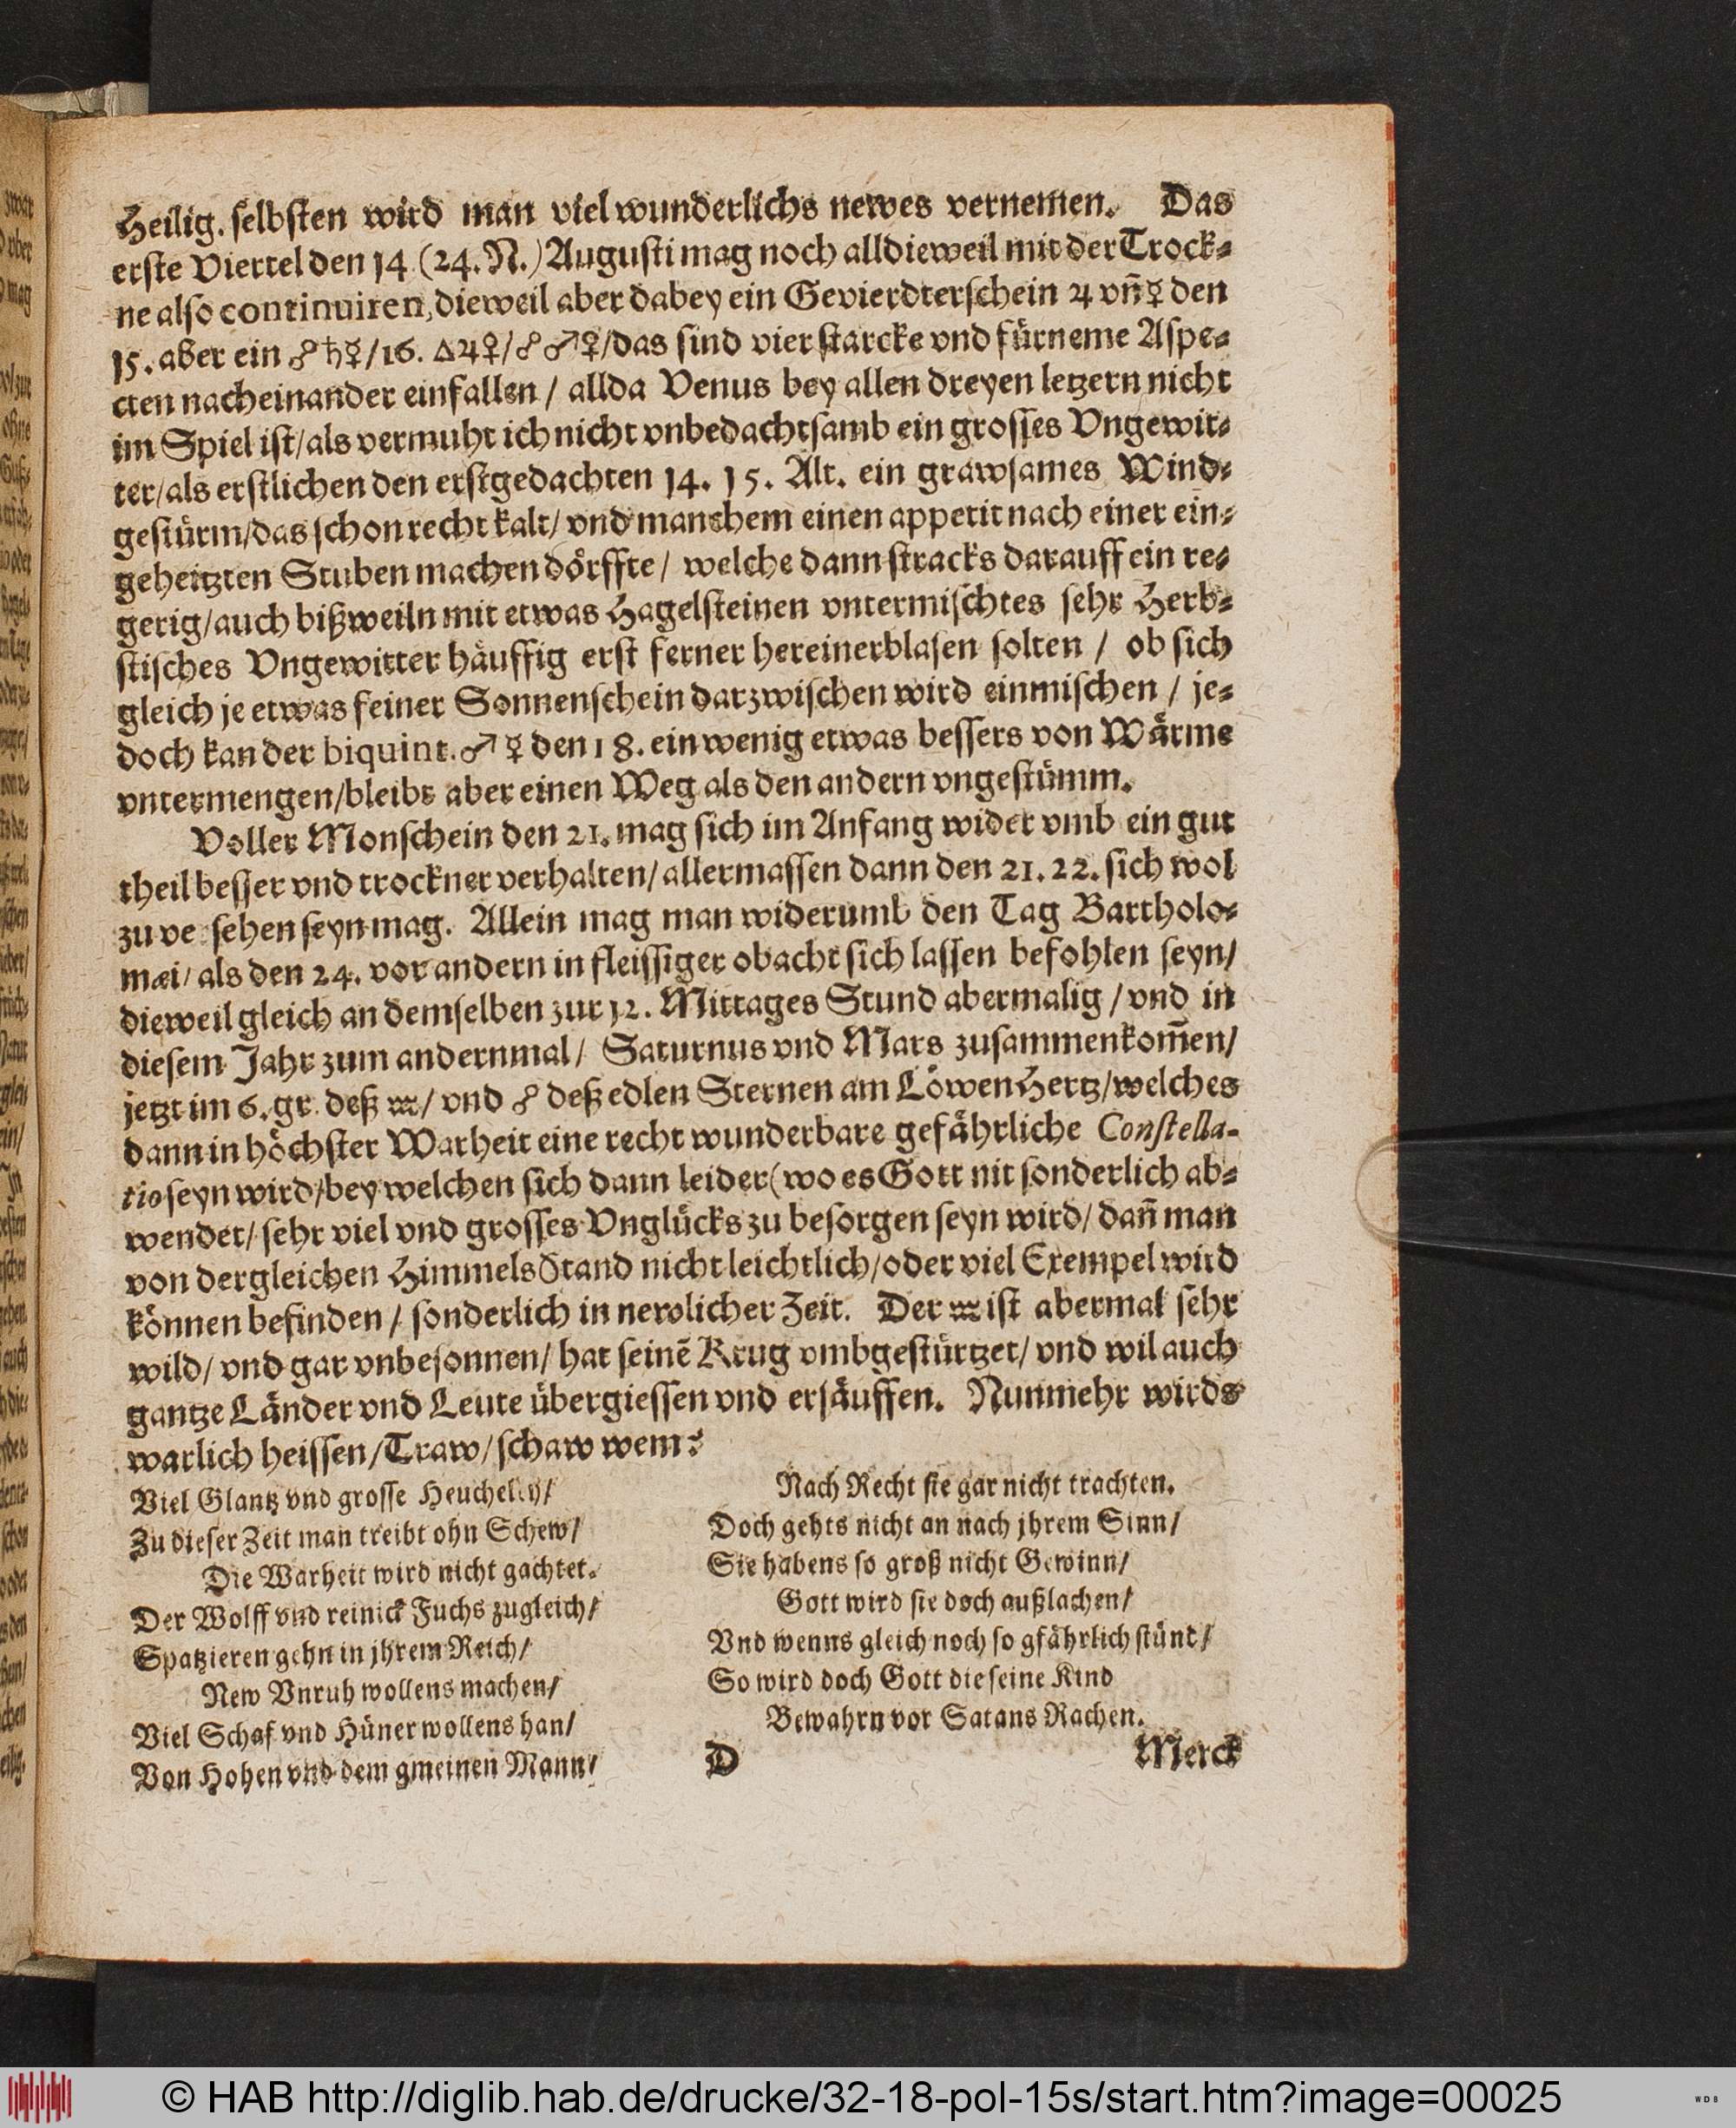 Heilig. selbsten wird man viel wunderlichs newes vernemen. Das
erste Viertel den 14 (24. N.) Augusti mag noch alldieweil mit der Trock⸗
ne also continuiren, dieweil aber dabey ein Gevierdterschein ♃ vñ ☿ den
15. aber ein ☍ ♄ ☿ / 16. △ ♃ ♀ / ☍ ♂ ♀ / das sind vier starcke vnd fürneme Aspe⸗
cten nacheinander einfallen / allda Venus bey allen dreyen letzern nicht
im Spiel ist / als vermuht ich nicht vnbedachtsamb ein grosses Vngewit⸗
ter / als erstlichen den erstgedachten 14. 15. Alt. ein grawsames Wind⸗
gestürm / das schon recht kalt / vnd manchem einen appetit nach einer ein⸗
geheitzten Stuben machen dörffte / welche dann stracks darauff ein re⸗
gerig / auch bißweiln mit etwas Hagelsteinen vntermischtes sehr Herb⸗
stisches Vngewitter häuffig erst ferner hereinerblasen solten / ob sich
gleich je etwas feiner Sonnenschein darzwischen wird einmischen / je⸗
doch kan der biquint. ♂ ☿ den 18. ein wenig etwas bessers von Wärme
vntermengen / bleibt aber einen Weg als den andern vngestümm.
Voller Monschein den 21. mag sich im Anfang wider vmb ein gut
theil besser vnd trockner verhalten / allermassen dann den 21. 22. sich wol
zu ve sehen seyn mag. Allein mag man widerumb den Tag Bartholo⸗
mæi / als den 24. vor andern in fleissiger obacht sich lassen befohlen seyn /
dieweil gleich an demselben zur 12. Mittages Stund abermalig / vnd in
diesem Jahr zum andernmal / Saturnus vnd Mars zusammenkom̃en /
jetzt im 6. gr. deß ♒ / vnd ☍ deß edlen Sternen am Löwen Hertz / welches
dann in höchster Warheit eine recht wunderbare gefährliche Constella-
tio seyn wird / bey welchen sich dann leider (wo es Gott nit sonderlich ab⸗
wendet / sehr viel vnd grosses Vnglücks zu besorgen seyn wird / dañ man
von dergleichen Himmels Stand nicht leichtlich / oder viel Exempel wird
können befinden / sonderlich in newlicher Zeit. Der ♒ ist abermal sehr
wild / vnd gar vnbesonnen / hat seinē Krug vmbgestürtzet / vnd wil auch
gantze Länder vnd Leute übergiessen vnd ersäuffen. Nunmehr wirds
warlich heissen / Traw / schaw wem?
Viel Glantz vnd grosse Heucheley /
Zu dieser Zeit man treibt ohn Schew /
Die Warheit wird nicht gachtet.
Der Wolff vnd reinick Fuchs zugleich /
Spatzieren gehn in jhrem Reich /
New Vnruh wollens machen /
Viel Schaf vnd Hüner wollens han /
Von Hohen vnd dem gmeinen Mann /
Nach Recht sie gar nicht trachten.
Doch gehts nicht an nach jhrem Sinn /
Sie habens so groß nicht Gewinn /
Gott wird sie doch außlachen /
Vnd wenns gleich noch so gfährlich stünt /
So wird doch Gott die seine Kind
Bewahrn vor Satans Rachen.
D Merck
© HAB http://diglib.hab.de/drucke/32-18-pol-15s/start.htm?image=00025